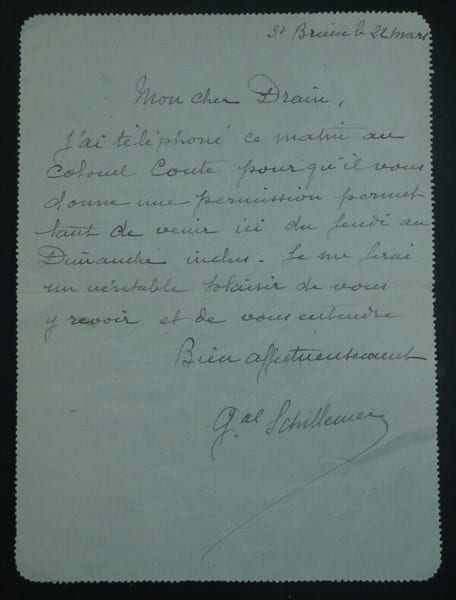 St Brieuc le 22 mars
Mon cher Drain,
J'ai téléphoné ce matin au
Colonel Coute pour qu'il vous
donne une permission permet
tant de venir ici du Jeudi au
Dimanche inclus. Je me ferai
un véritable plaisir de vous
y revoir et de vous entendre
Bien affectueusement
Gal Schillemer